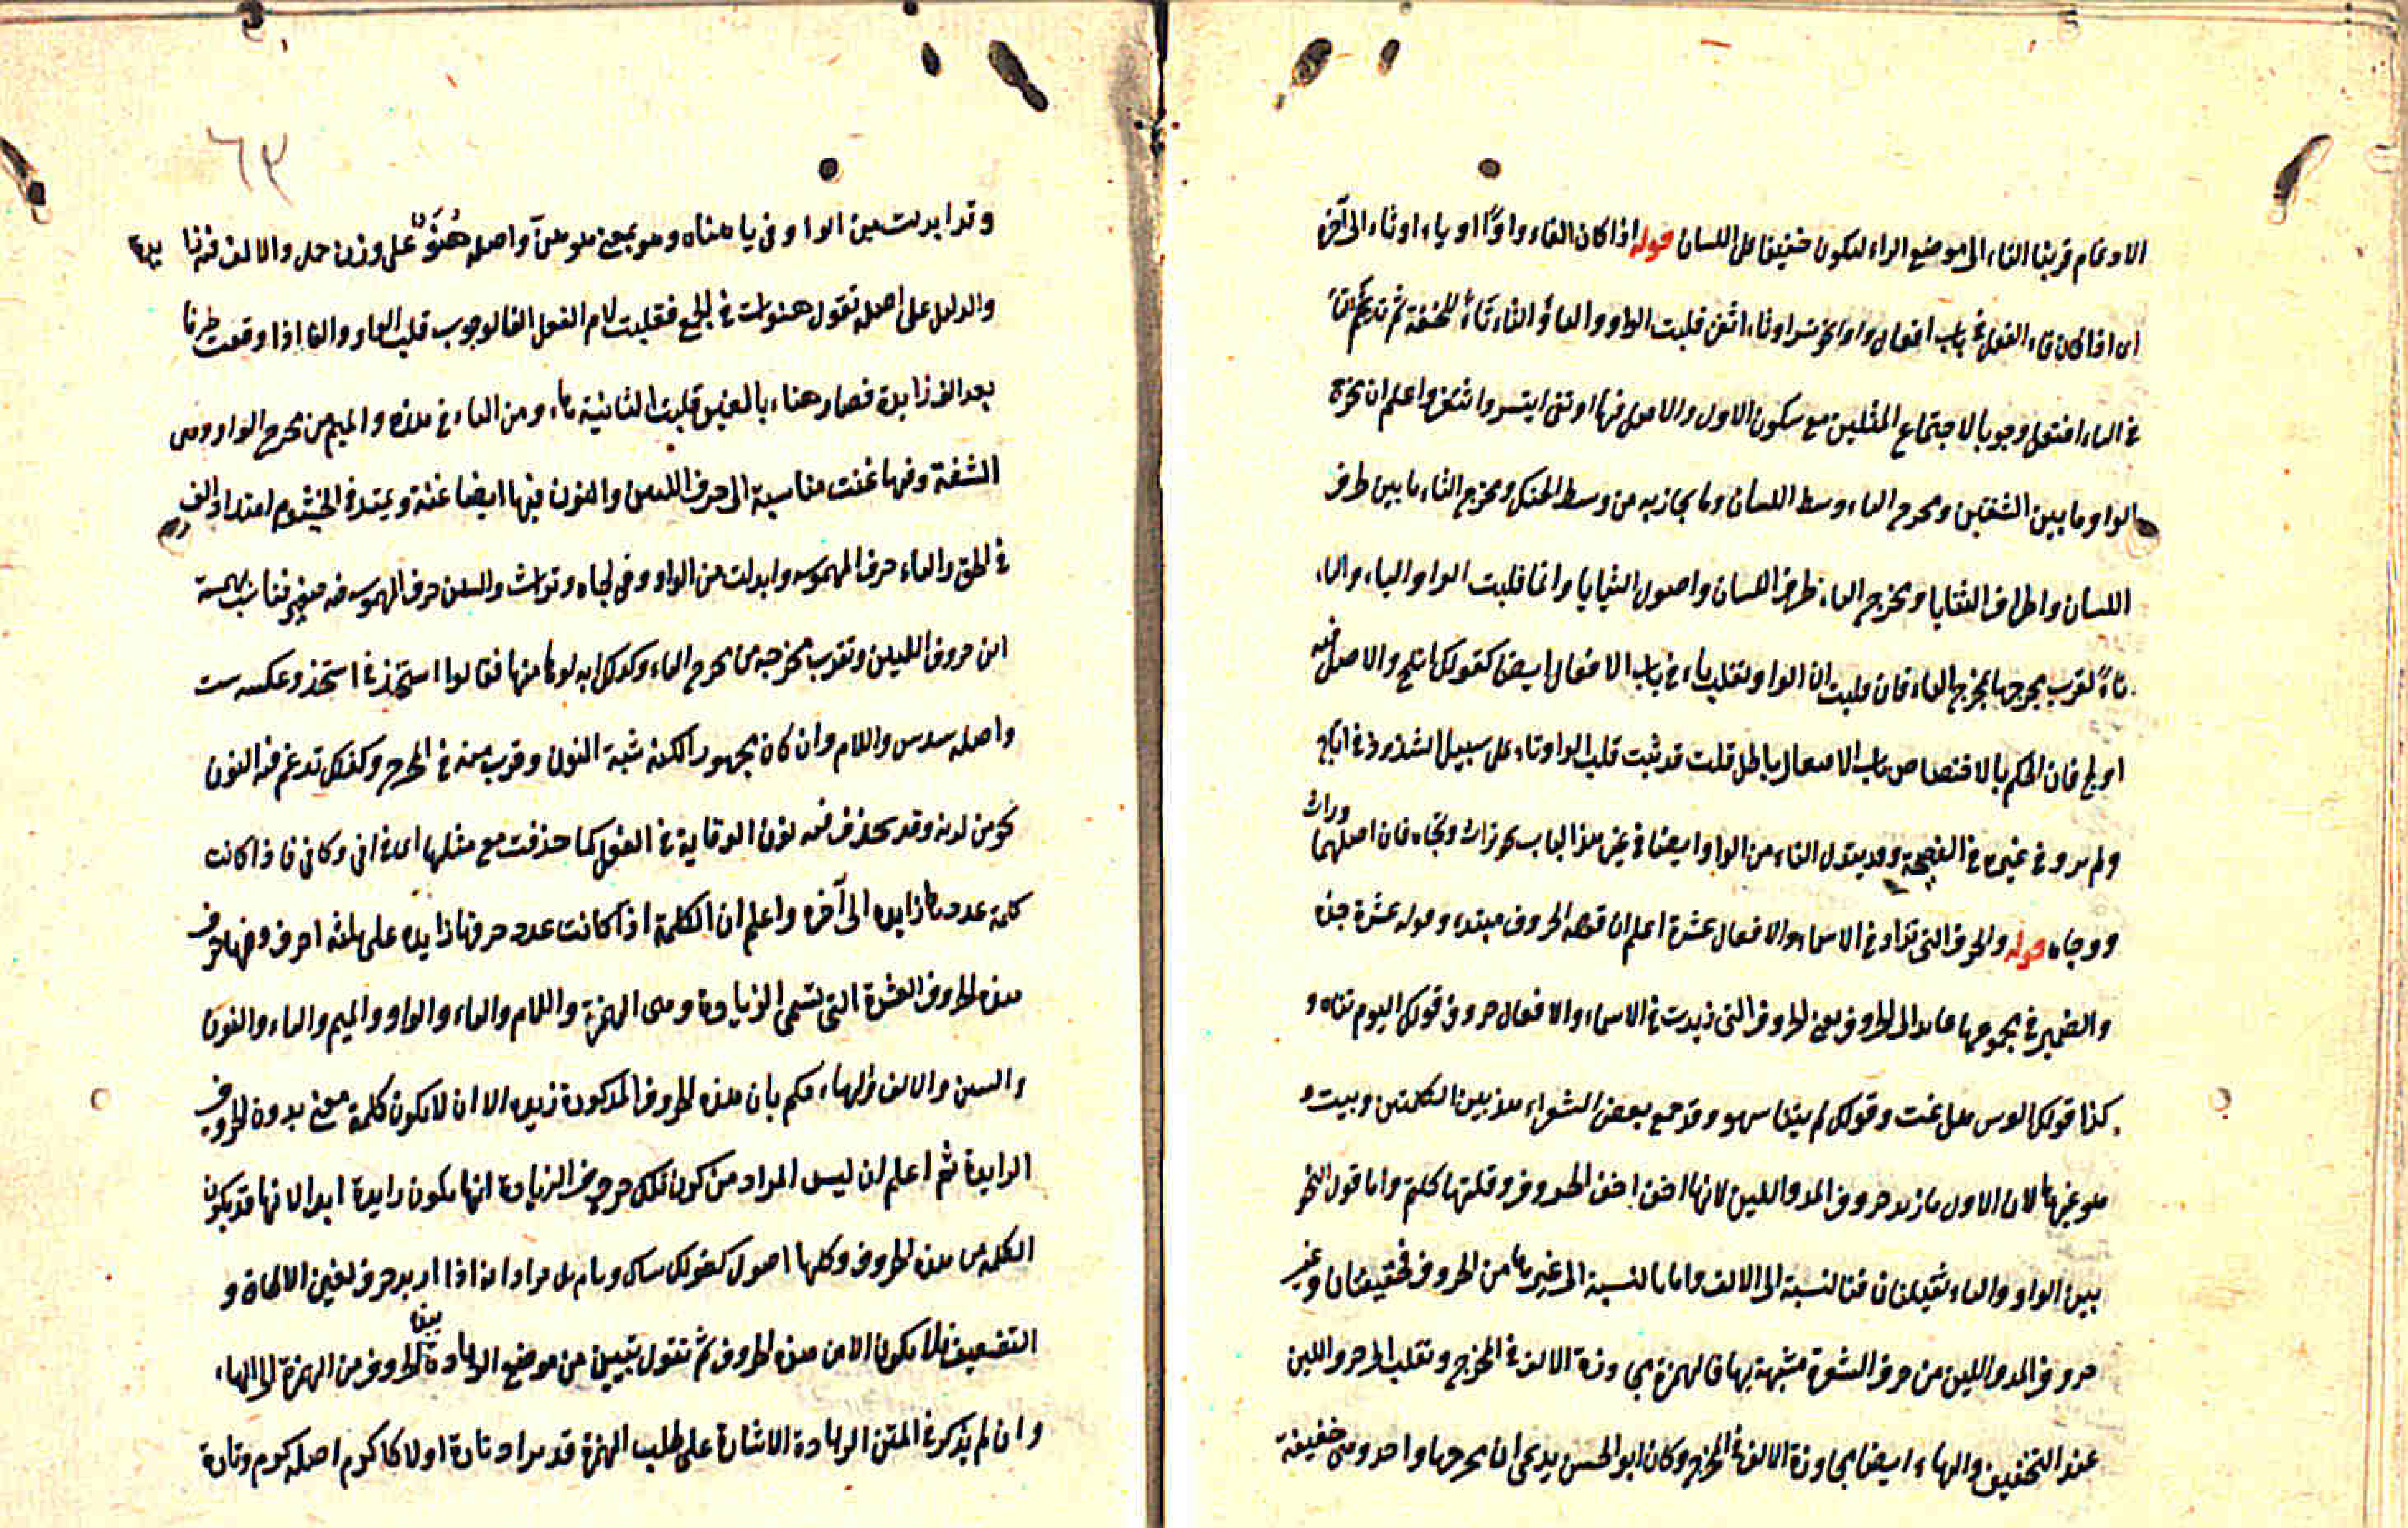 الادغام قربنا التاء الى موضع الراء ليكون خفيفا على اللسان قوله اذا كان الفاء واوًا او ياء او ثاء الى آخره
اى اذا كان فاء الفعل فى باب افتعل واوا نحو اوتسر او ثاء اثغر قلبت الواو والياء والثاء تاءً للخفة ثم تدغم التاء
فى التاء افتعل وجوبا لاجتماع المثلين مع سكون الاول والاصل فيها اوتقى ايتسر واثتغر واعلم ان مخرج
الواو ما بين الشفتين ومخرج الياء وسط اللسان وما يحاذيه من وسط الحنك ومخرج الثاء ما بين طرف
اللسان واطراف الثنايا ومخرج التاء طرف اللسان واصول الثنايا وانما قلبت الواو والياء والثاء
تاءً لقرب مخرجها بمخرج التاء فان قلت ان الواو تقلب تاء فى باب الافعال ايضا كقولك اتلج والاصل فيه
اولج فان الحكم بالاختصاص بباب الافتعال باطل قلت قد ثبت قلب الواو تاء على سبيل الشذوذ فى اتلج
ولم يرو فى غيره فى الفصيحة وقد يبدل التاء من الواو ايضا فى غير هذا الباب نحو تراث وتجاه فان اصلهما وراث
ووجاه قوله والحروف التى تزاد فى الاسماء والافعال عشرة اعلم ان قوله الحروف مبتداء وقوله عشرة خبره
والضمير فى مجموعها عائد الى الحروف يعنى الحروف التى زيدت فى الاسماء والافعال حروف قولك اليوم تنساه و
كذا قولك الوس هل نمت وقولك لم يتنا سهو وقد جمع بعض الشعراء هذ بين الكلمتين وبيت و
هو غيرها لان الاول ما زيد حروف المد واللين لانها اخف الحروف وقلتها كلتم واما قول النحو
بين الواو والياء ثقيلتان فبالنسبة الى الالف واما بالنسبة الى غيرها من الحروف فخفيفتان وغير
حروف المد واللين من حروف العشرة مشبهة بها فالهمزة مجاورة الالف فى المخرج وتقلب الى حروف اللين
عند التخفيف والهاء ايضا مجاورة الالف فى المخرج وكان ابو الحسن يدعى ان مخرجها واحد وهى خفيفة
٦٣
وقد ابدلت من الواو فى يا هناه وهو بمعنى هو هن واصله هَنَوٌ على وزن حمل والالف فزنا
والدليل على اصله تقول هنوات فى الجمع فقلبت لام الفعل الفا لوجوب قلب الواو والفا اذا وقعت طرفا
بعد الف زايدة فصار هناء بالفين قلبت الثانية هاء ومن الهاء فى هذه والميم من مخرج الواو وهى
الشفة وفيها غنت مناسبة الى حروف اللين والنون فيها ايضا غنة ويمتد فى الخيشوم امتداد الف
فى الحلق والتاء حرف المهموسة وابدلت من الواو وفى تجاه وتراث والسين حرف المهموسة فيه صفير فناسب بهمسه
اين حروف اللين وتقرب مخرجه من مخرج التاء وكذلك ابدلوها منها فقالوا استخذ فى استخذ وعكسه ست
واصله سدس واللام وان كان مجهورا لكنه شبه النون وقرب منه فى المخرج وكذلك تدغم فيه النون
نحو من لدنه وقد يحذف معه نون الوقاية فى الفعل كما حذفت مع مثلها اى فى انى وكانى فاذا كانت
كلمة عدد ها زايده الى آخره واعلم ان الكلمة اذا كانت عدد حروفها زايده على ثلثة احرف وفيها حرف
هذه الحروف العشرة التى تسمى الزيادة وهى الهمزة واللام والياء والواو والميم والتاء والنون
والسين والالف والهاء فحكم بان هذه الحروف المذكورة زيده الا ان لا يكون كلمة معنى بدون الحروف
الزايدة ثم اعلم ان ليس المراد من كون تلك حروف الزيادة انها يكون زايدة ابدا لانها قد يكون
الكلمة من هذه الحروف وكلها اصول كقولك سال ونام بل مرادا انه اذا اريد حرف لغير الالحاق و
التضعيف فلا يكون الا من هذه الحروف ثم نقول نبين من موضع الزيادة الحروف من الهمزة الى الهاء
وان لم يذكر فى المتن الزيادة الاشارة على طلب الهمزة قد يزاد تارة اولا كاكرم اصله كرم وتارة